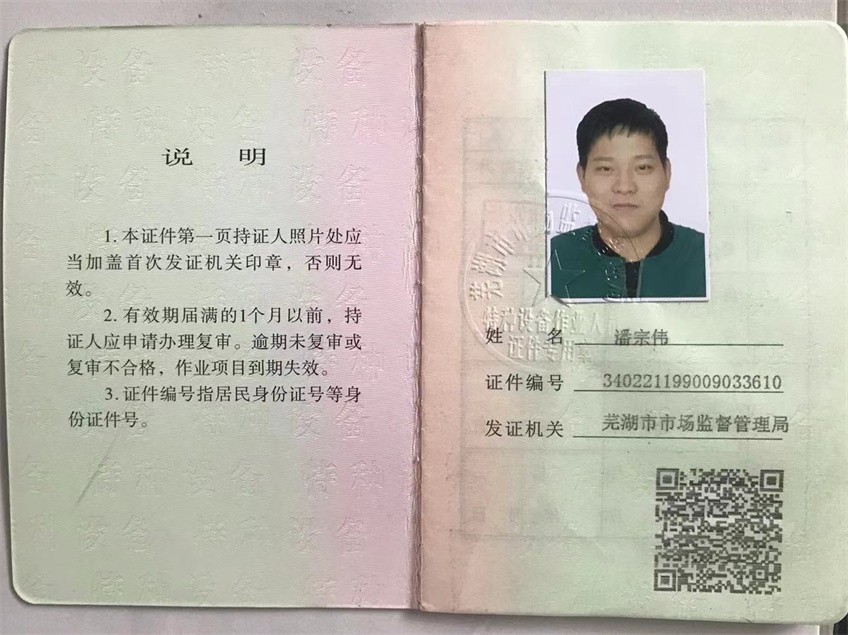 说 明
1. 本证件第一页持证人照片处应
当加盖首次发证机关印章，否则无
效。
2. 有效期届满的1个月以前，持
证人应申请办理复审。逾期未复审或
复审不合格，作业项目到期失效。
3. 证件编号指居民身份证号等身
份证件号。
芜湖市市场监
特种设备作业人员
证件专用章
姓 名 潘宗伟
证件编号 340221199009033610
发证机关 芜湖市市场监督管理局
特种设备